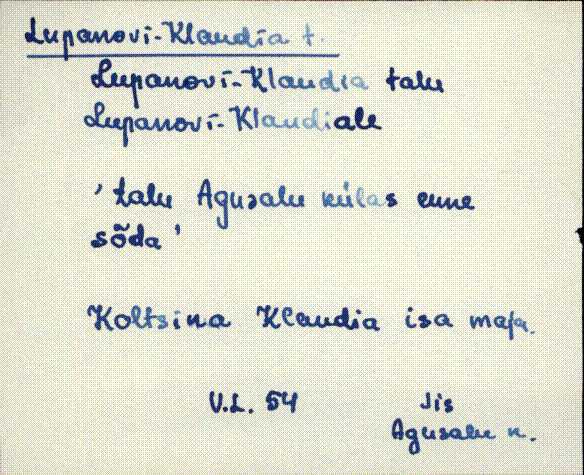 Lupanovi-Klaudia t.
Lupanovi-Klaudia talu
Lupanovi-Klaudiale
'talu Agusalu külas enne
sõda'
Koltsina Klaudia isa maja.
V.L. 54 Jis
Agusalu n.